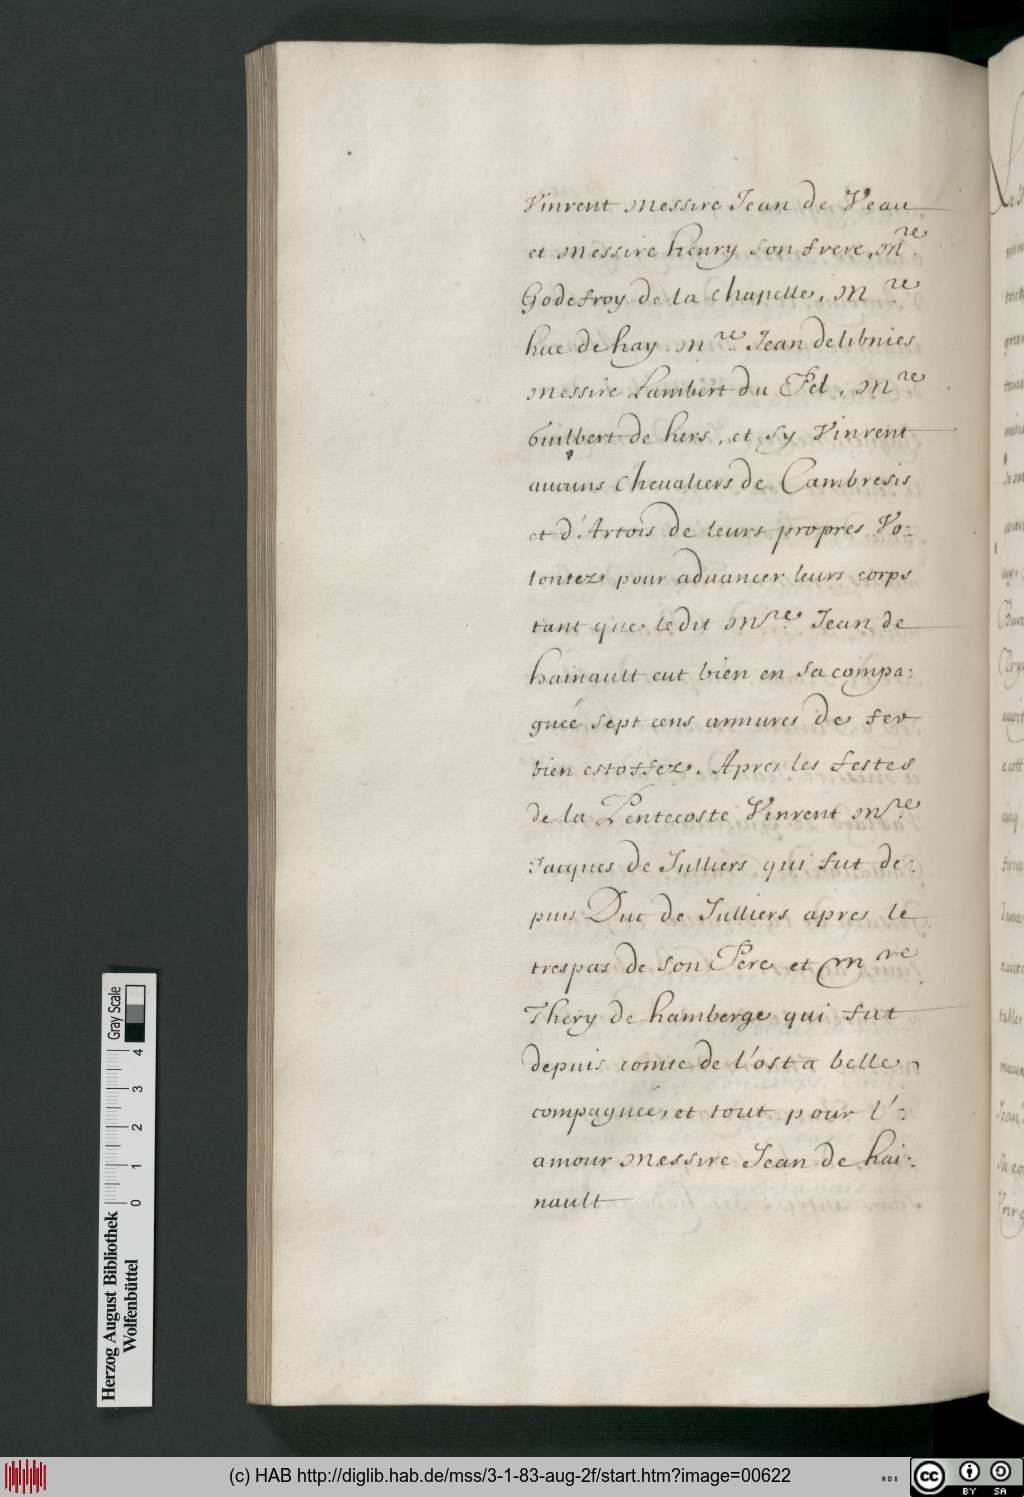 Vinrent messire Jean de Veau
et messire henry son frere, M.re
Godefroy de la Chapelle, M re
hue de hay. M.re Jean de libnies
messire Lambert du Pel, M.re
Guilbert de hers, et sy Vinrent
aucuns Chevaliers de Cambresis
et d'Artois de leurs propres Vo:
lontez pour advancer leurs corps
tant que ledit M.re Jean de
hainault eut bien en sa compa:
gnée sept cens armures de fer
bien estoffez. Apres les festes
de la Pentecoste Vinrent M.re
Jacques de Julliers qui fut de:
puis Duc de Julliers apres le
trespas de son Pere et M re
Thery de hamberge qui fut
depuis comte de l'ost a belle
compagnée, et tout pour l':
amour messire Jean de hai:
nault
Gray Scale
0 1 2 3 4
Herzog August Bibliothek
Wolfenbüttel
(c) HAB http://diglib.hab.de/mss/3-1-83-aug-2f/start.htm?image=00622
WDB
cc BY SA